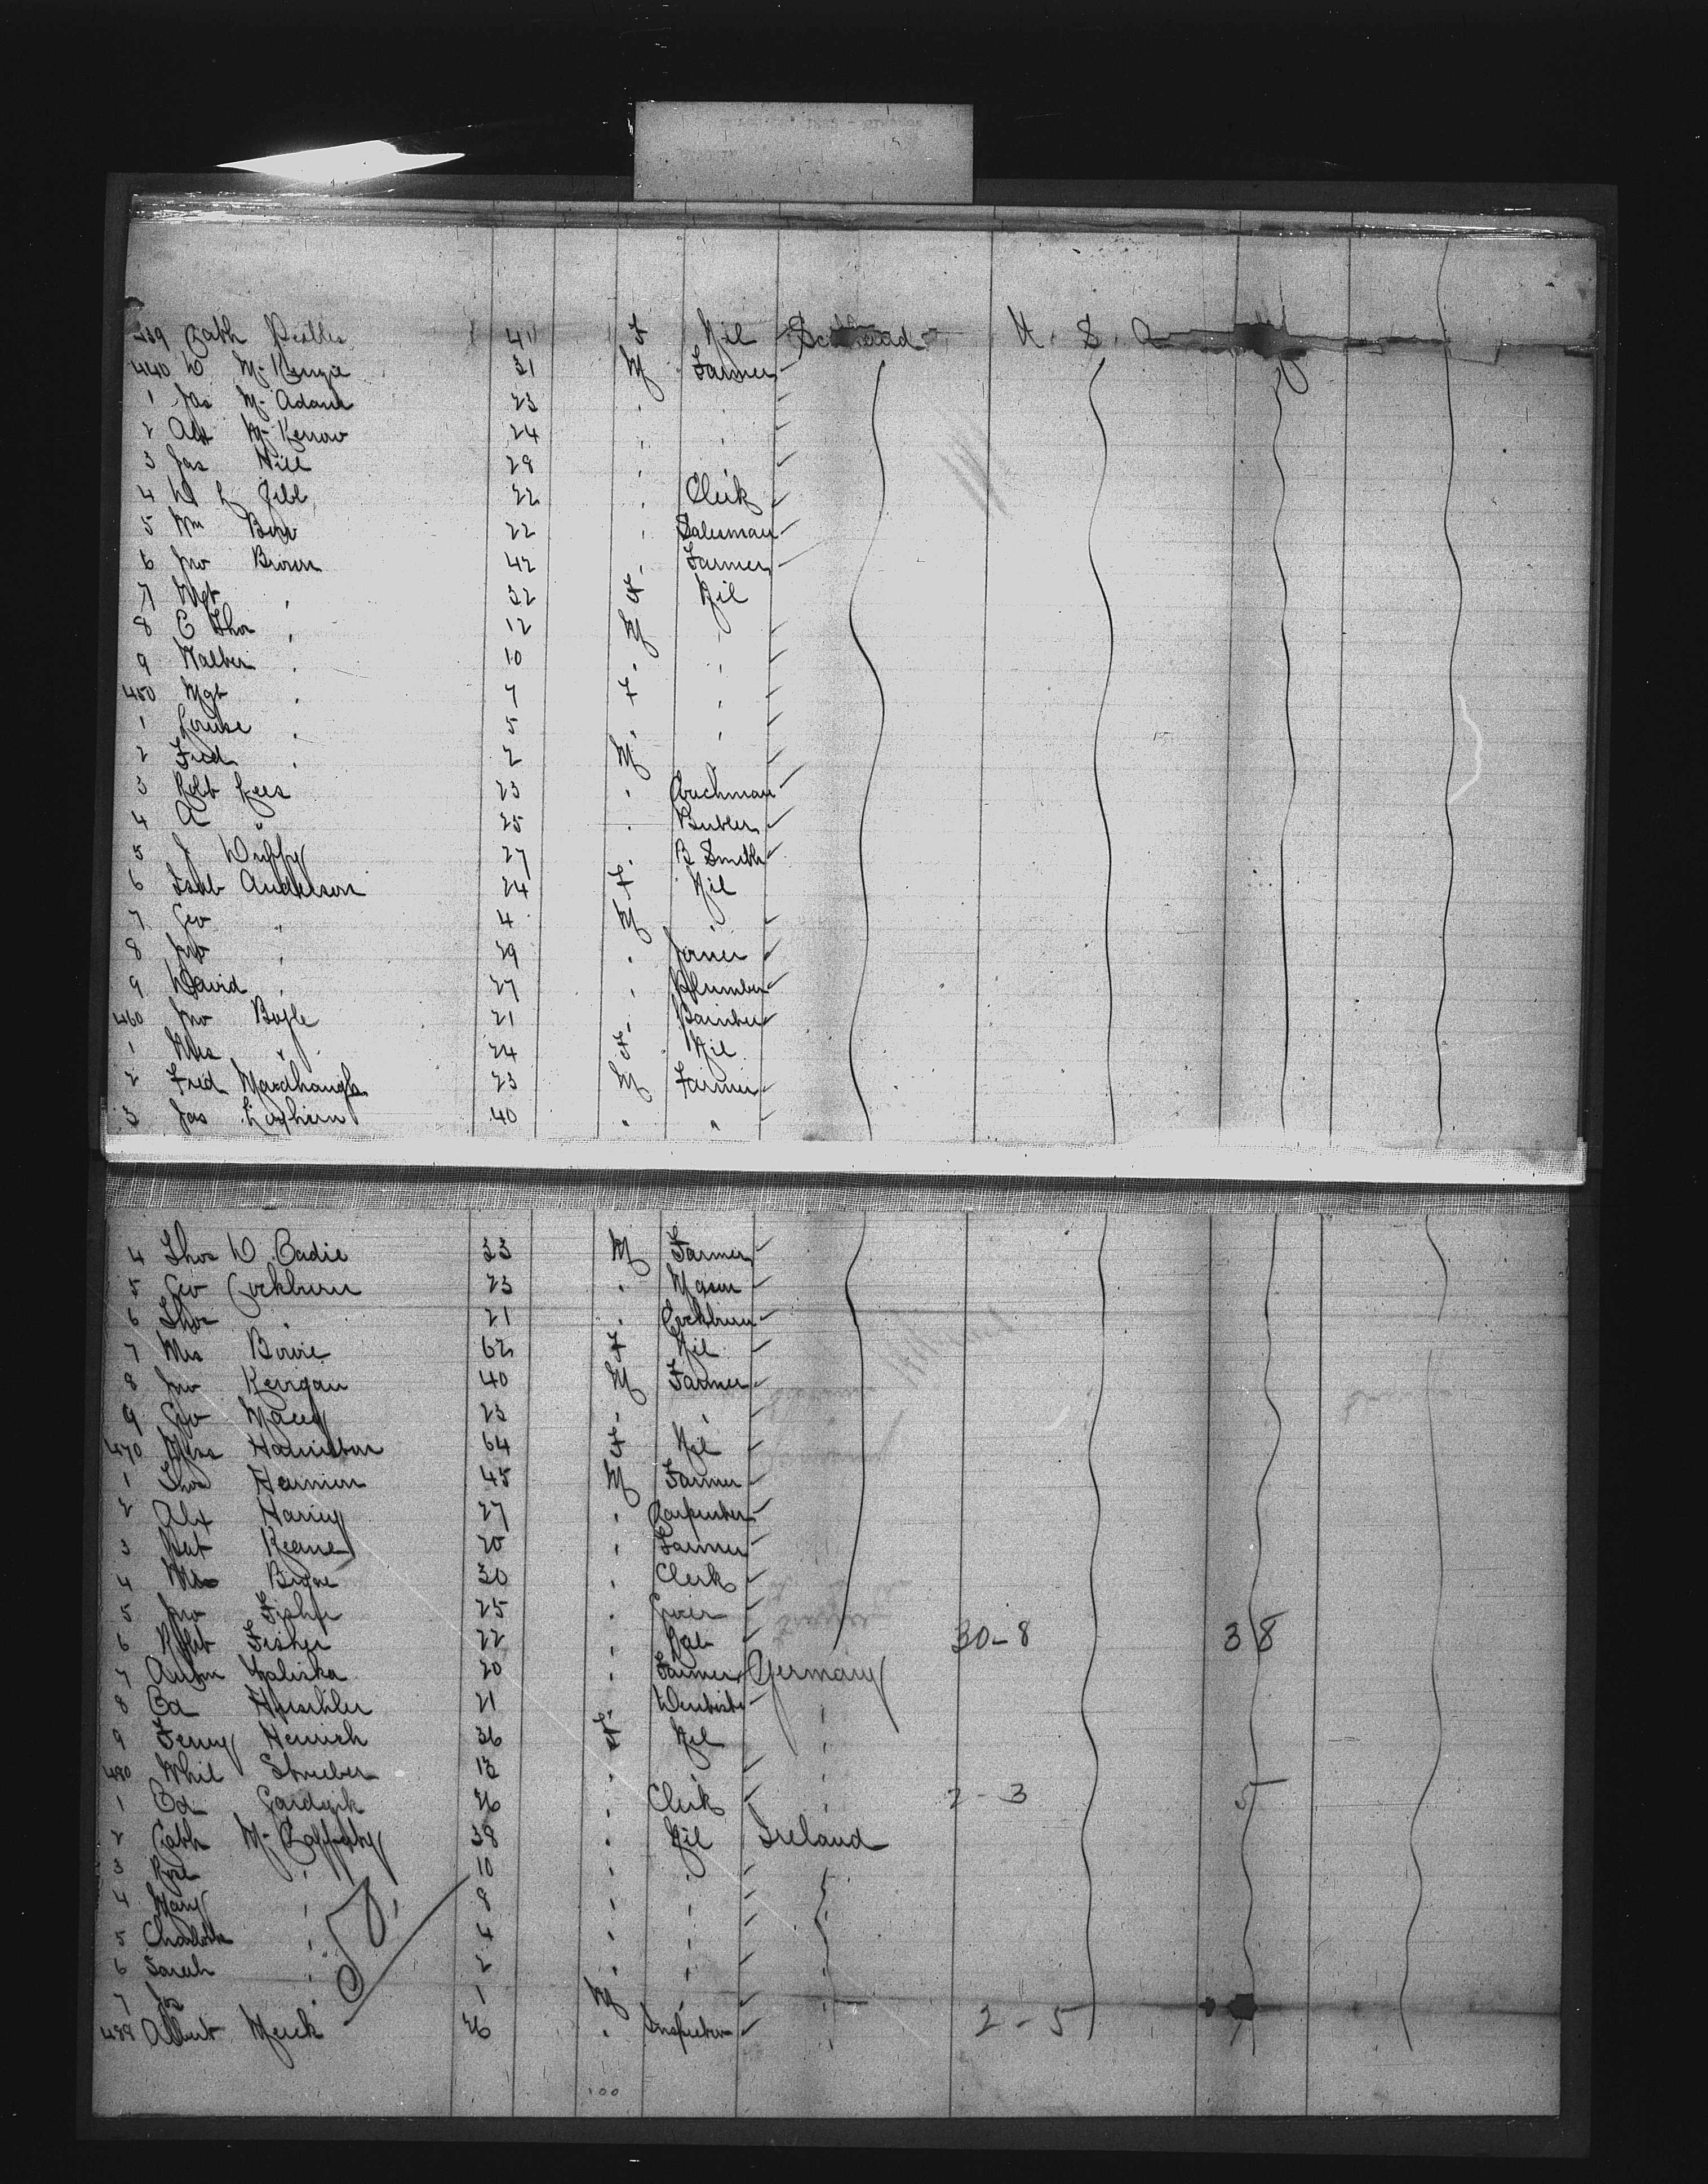 439 Cath Peebles 41 F Nil Scotland U. S. A
440 D McKenzie 31 M Farmer
1 Jas McAdam 23 " "
2 Alex McKerrow 24 " "
3 Jas Hill 29 " "
4 W L Gibb 22 " Clerk
5 Wm Barr 22 " Salesman
6 Jno Brown 42 " Farmer
7 Mgt " 32 F Nil
8 E Thos " 12 M "
9 Walter " 10 " "
450 Mgt " 7 F "
1 Louise " 5 " "
2 Fred " 2 M "
3 Robt Lees 23 " Coachman
4 A " 25 " Butler
5 J Duffy 27 " B Smith
6 Isab Anderson 24 F Nil
7 Geo " 4 M "
8 Jno " 29 " Joiner
9 David " 27 " Plumber
460 Jno Boyle 21 " Painter
1 Mrs " 24 F Nil
2 Fred 23 M Farmer
3 Jas 40 " "
4 Thos D Eadie 33 M Farmer
5 Geo Cockburn 23 " Mason
6 Thos " 21 " Cockburn
7 Mrs Bowie 62 F Nil
8 Jno Kerrigan 40 M Farmer
9 Geo Macey 23 " "
470 Miss Hamilton 64 F Nil
1 Thos 45 M Farmer
2 Alex 27 " Carpenter
3 Pat Keane 20 " Farmer
4 30 " Clerk
5 Jno Fisher 25 " Grocer
6 Robt Fisher 22 " 30-8 38
7 20 " Farmer Germany
8 Ed Hirschler 21 " Dentist "
9 Jenny Heinrich 36 F Nil "
480 Whil Struber 13 " " "
1 Ed 26 " Clerk " 2-3 5
2 Cath McCafferty 38 " Nil Ireland
3 Rose " 10 " " "
4 Mary " 8 " " "
5 Charlotte " 4 " " "
6 Sarah " 2 " " "
7 Jos " 1 M " "
488 Albert Meick 26 " Inspector " 2-5 7